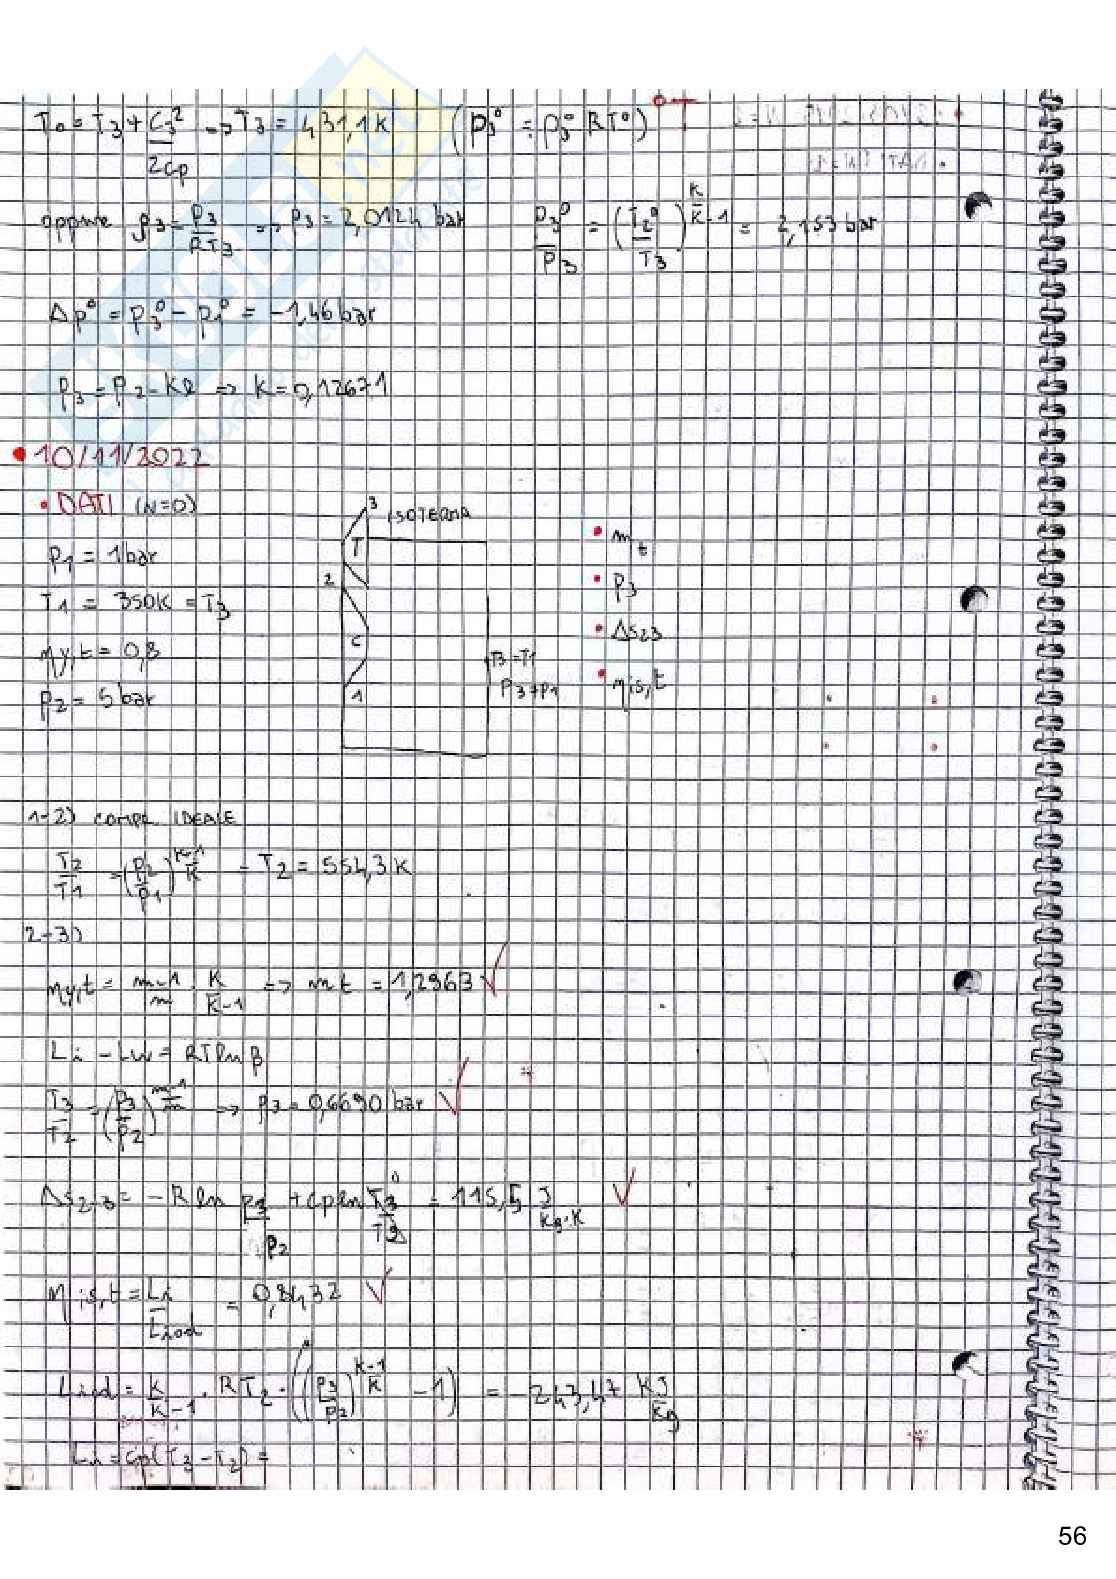 T° = T3 + C3²/2cp => T3 = 431,1 K (p3° = ρ3° RT°)
oppure ρ3 = p3/RT3 => p3 = 2,0124 bar p3°/p3 = (T2°/T3)^K/K-1 = 2,153 bar
Δp° = p3° - p1° = -1,46 bar
p3 = p2 - Kl => K = 0,12671
• 10/11/2022
• DATI (N=0)
3 ISOTERMA
p1 = 1 bar
T
• mt
T1 = 350K = T3
2
• p3
ηy,t = 0,8
C
• Δs23
p2 = 5 bar
1
T3 = T1
p3 ≠ p1
• ηis,t
1-2) COMPR. IDEALE
T2/T1 = (p2/p1)^K-1/K - T2 = 554,3 K
2-3)
ηy,t = m-1/m · K/K-1 => mt = 1,2963 √
Li - Lw = RT ln β
T3/T2 = (p3/p2)^m-1/m => p3 = 0,6690 bar √
Δs2,3 = -R ln p3/p2 + cp ln T3/T2 = 115,5 J/kg·K √
ηis,t = Li/Liad = 0,8432 √
Liad = K/K-1 · RT2 · ((p3/p2)^K-1/K - 1) = -243,47 KJ/kg
Li = cp(T3 - T2) =
56